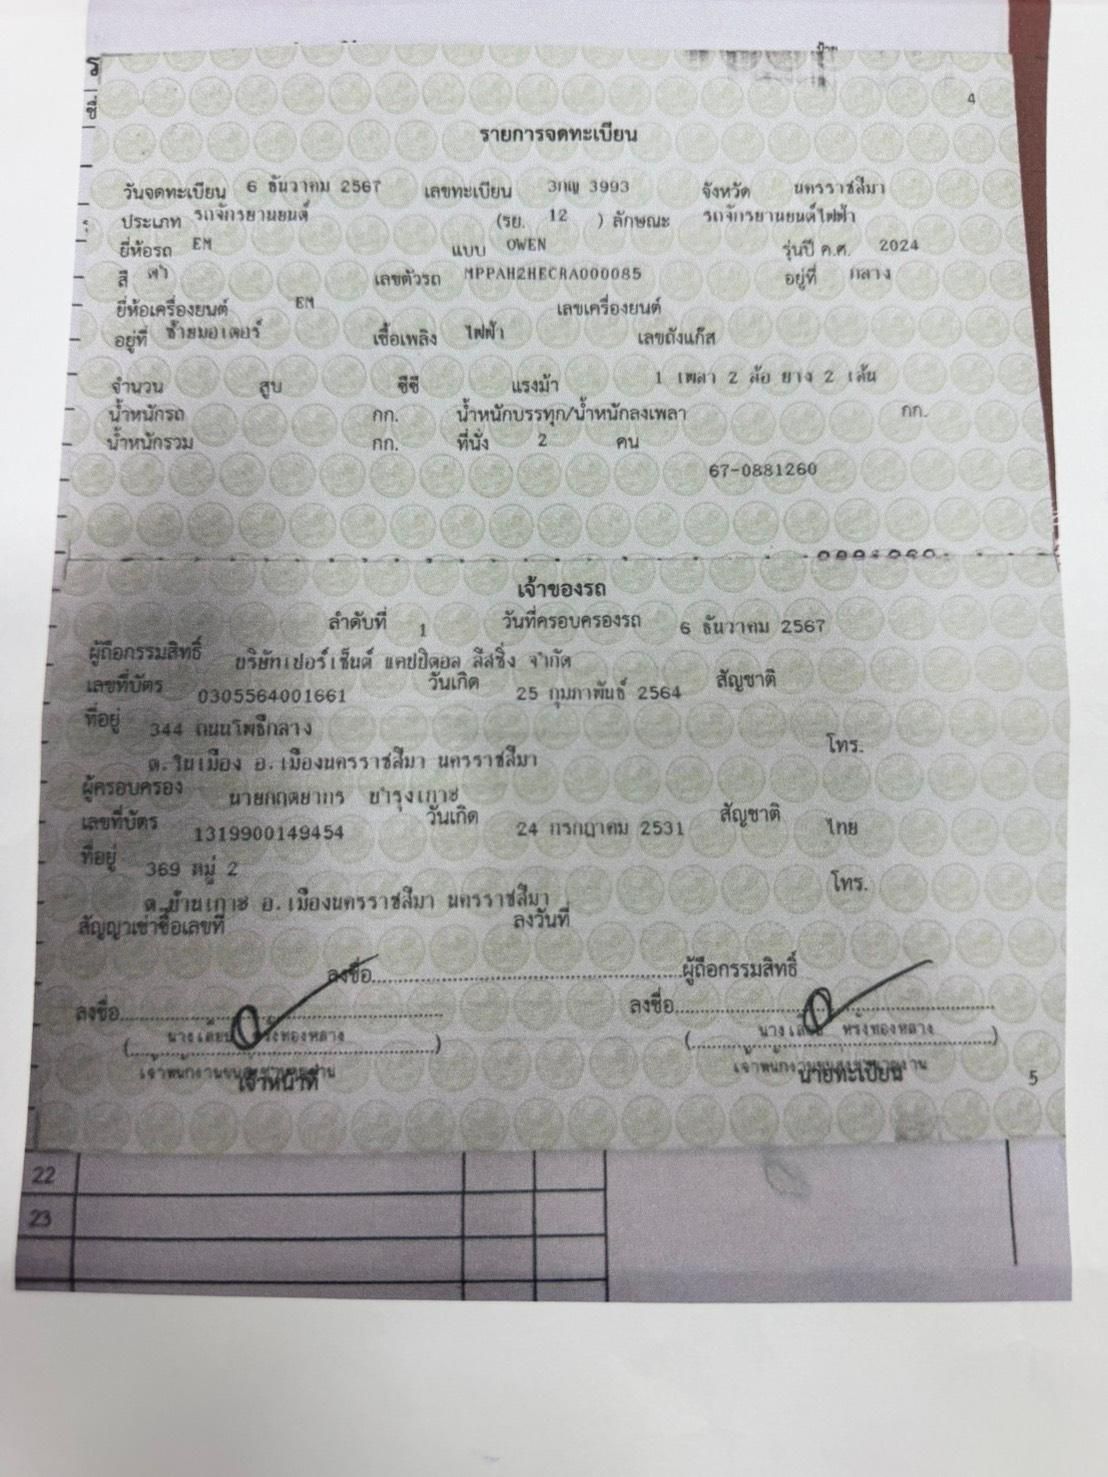 4
รายการจดทะเบียน
วันจดทะเบียน 6 ธันวาคม 2567 เลขทะเบียน 3กญ 3993 จังหวัด นครราชสีมา
ประเภท รถจักรยานยนต์ (รย. 12 ) ลักษณะ รถจักรยานยนต์ไฟฟ้า
ยี่ห้อรถ EM แบบ OWEN รุ่นปี ค.ศ. 2024
สี ดำ เลขตัวรถ MPPAH2HECRA000085 อยู่ที่ กลาง
ยี่ห้อเครื่องยนต์ EM เลขเครื่องยนต์
อยู่ที่ ซ้ายมอเตอร์ เชื้อเพลิง ไฟฟ้า เลขถังแก๊ส
จำนวน สูบ ซีซี แรงม้า 1 เพลา 2 ล้อ ยาง 2 เส้น
น้ำหนักรถ กก. น้ำหนักบรรทุก/น้ำหนักลงเพลา กก.
น้ำหนักรวม กก. ที่นั่ง 2 คน
67-0881260
เจ้าของรถ
ลำดับที่ 1 วันที่ครอบครองรถ 6 ธันวาคม 2567
ผู้ถือกรรมสิทธิ์ บริษัทเปอร์เซ็นต์ แคปปิตอล ลีสซิ่ง จำกัด
เลขที่บัตร 0305564001661 วันเกิด 25 กุมภาพันธ์ 2564 สัญชาติ
ที่อยู่ 344 ถนนโพธิ์กลาง
ต.ในเมือง อ.เมืองนครราชสีมา นครราชสีมา โทร.
ผู้ครอบครอง นายกฤตยากร บำรุงเกาะ
เลขที่บัตร 1319900149454 วันเกิด 24 กรกฎาคม 2531 สัญชาติ ไทย
ที่อยู่ 369 หมู่ 2
ต.บ้านเกาะ อ.เมืองนครราชสีมา นครราชสีมา โทร.
สัญญาเช่าซื้อเลขที่ ลงวันที่
ลงชื่อ ผู้ถือกรรมสิทธิ์
ลงชื่อ ลงชื่อ
หรั่งทองหลาง หรั่งทองหลาง
เจ้าหน้าที่ นายทะเบียน
5
22
23